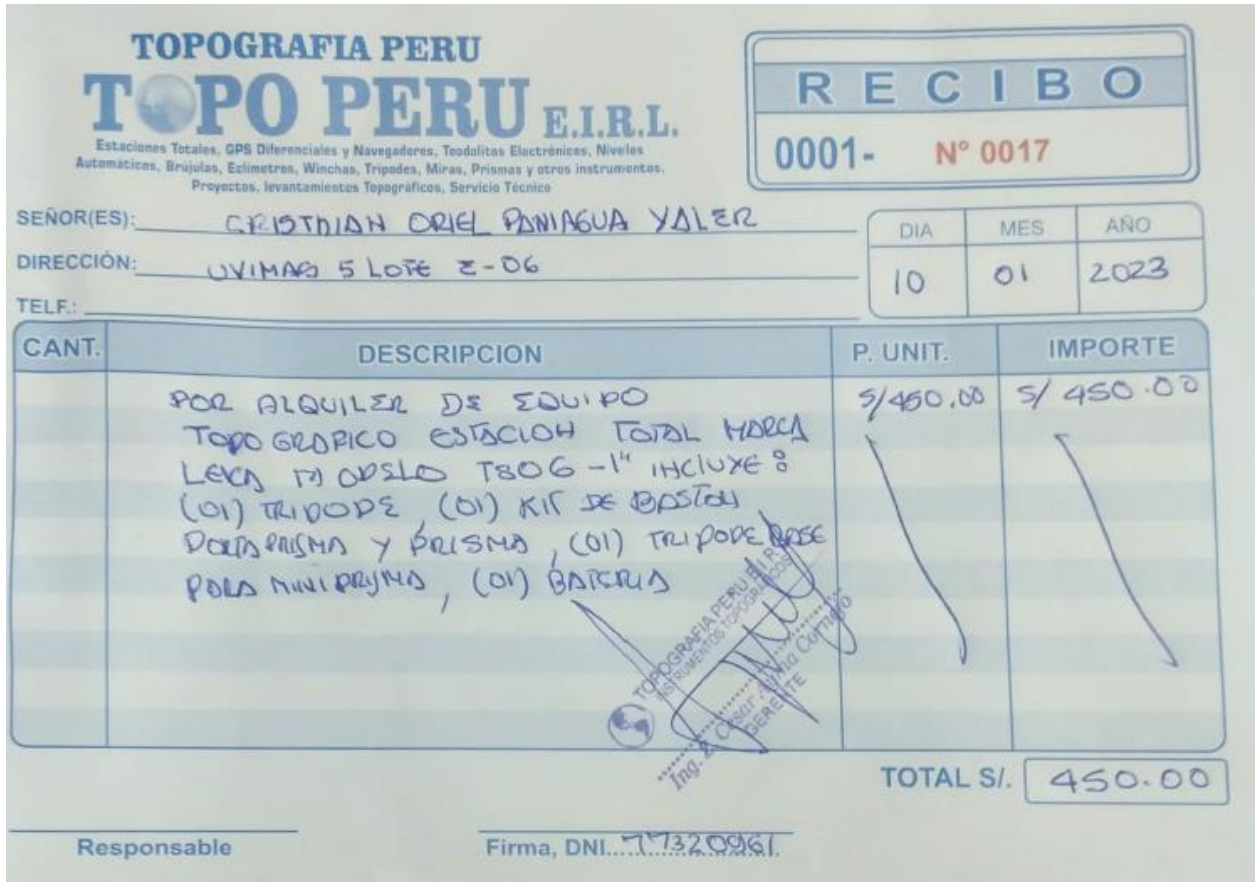 TOPOGRAFIA PERU
TOPO PERU E.I.R.L.
Estaciones Totales, GPS Diferenciales y Navegadores, Teodolitos Electrónicos, Niveles
Automáticos, Brújulas, Eclímetros, Winchas, Trípodes, Miras, Prismas y otros instrumentos.
Proyectos, levantamientos Topográficos, Servicio Técnico
RECIBO
0001- N° 0017
SEÑOR(ES): CRISTHIAN ORIEL PANIAGUA YALER
DIRECCIÓN: UVIMAS 5 LOTE Z-06
TELF.:
DIA MES AÑO
10 01 2023
CANT. DESCRIPCION P. UNIT. IMPORTE
POR ALQUILER DE EQUIPO S/450.00 S/ 450.00
TOPOGRAFICO ESTACION TOTAL MARCA
LEICA MODELO TS06-1" INCLUYE:
(01) TRIPODE, (01) KIT DE BASTON
PORTAPRISMA Y PRISMA, (01) TRIPODE BASE
PARA MINIPRISMA, (01) BATERIA
TOPOGRAFIA PERU E.I.R.L.
INSTRUMENTOS TOPOGRAFICOS
Ing. Cesar Cornejo
GERENTE
TOTAL S/. 450.00
Responsable
Firma, DNI. 77320961